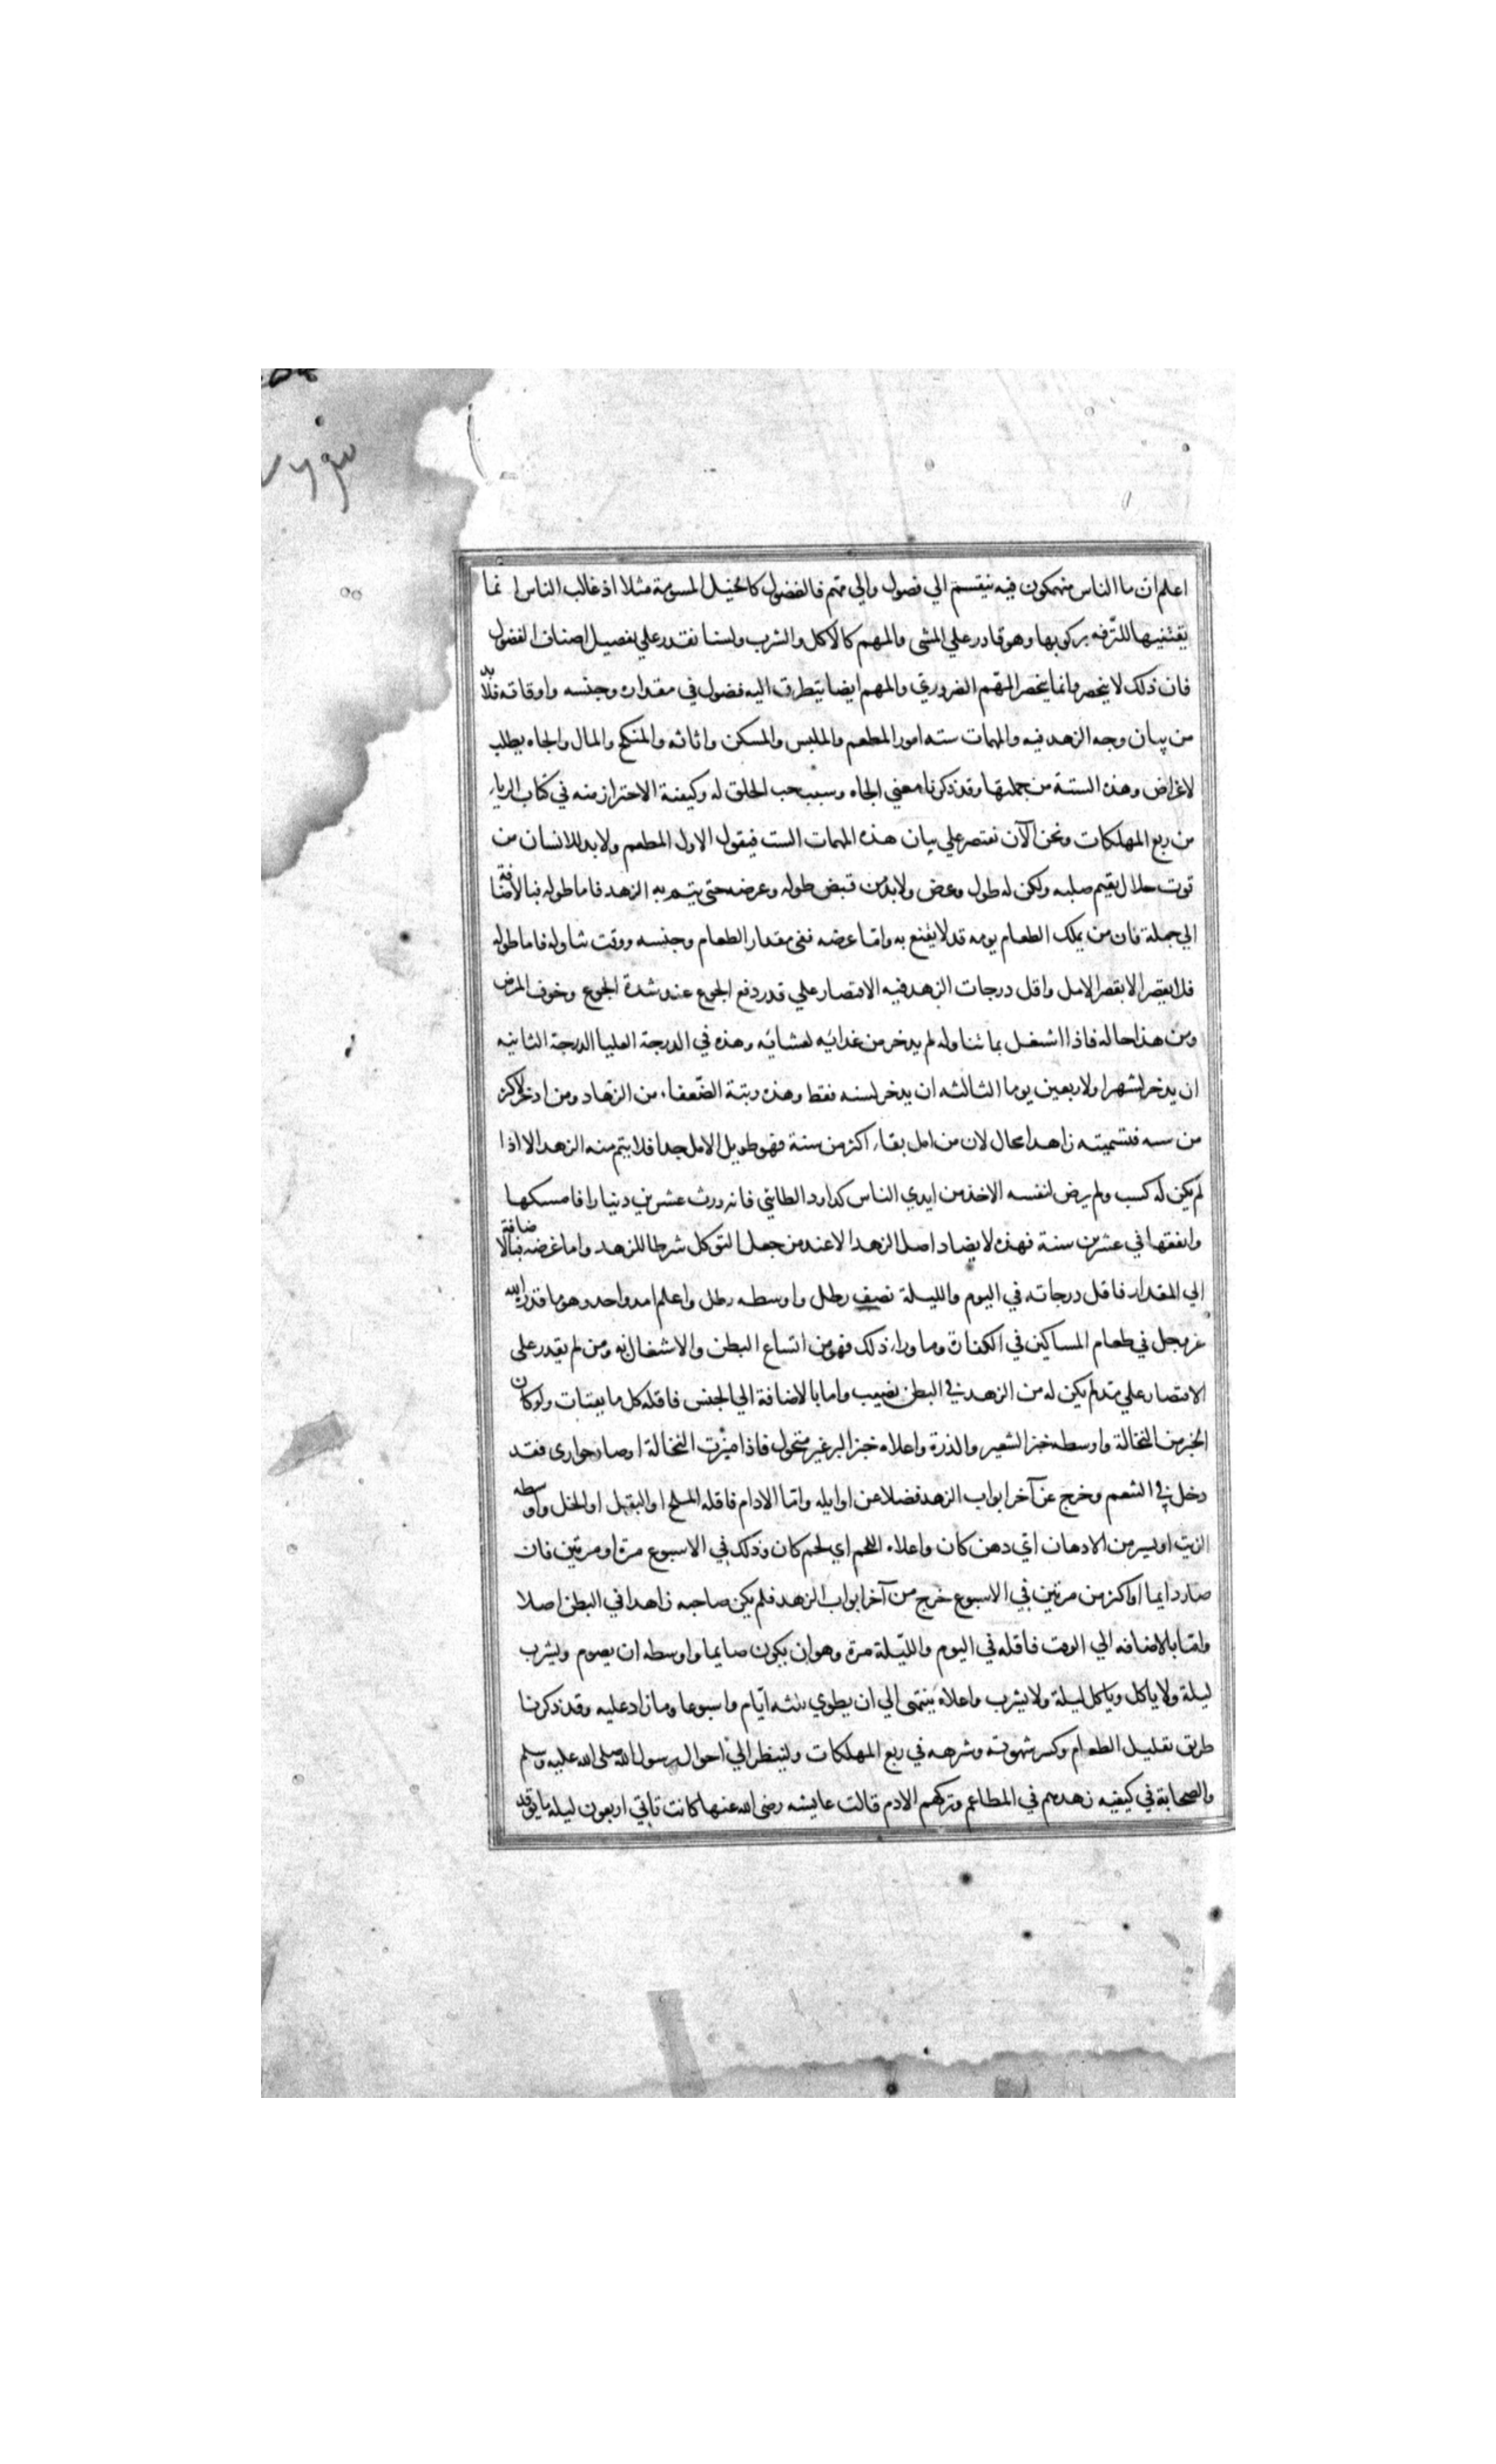 اعلم ان ما الناس منهمكون فيه ينقسم الي فضول والي مهم فالفضول كالخيل المسومة مثلا اذ غالب الناس انما
يقتنيها للترفه بركوبها وهو قادر علي المشي والمهم كالاكل والشرب ولسنا نقدر علي تفصيل اصناف الفضول
فان ذلك لا ينحصر وانما ينحصر المهم الضروري والمهم ايضا يتطرق اليه فضول في مقداره وجنسه واوقاته فلا بد
من بيان وجه الزهد فيه والمهمات سته امور المطعم والملبس والمسكن واثاثه والمنكح والمال والجاه يطلب
لاغراض وهذه الستة من جملتها وقد ذكرنا معني الجاه وسبب حب الخلق له وكيفية الاحتراز منه في كتاب الرياء
من ربع المهلكات ونحن الآن نقتصر علي بيان هذه المهمات الست فيقول الاول المطعم ولا بد للانسان من
قوت حلال يقيم صلبه ولكن له طول وعرض ولا بد من قبض طوله وعرضه حتي يتم به الزهد فاما طوله فبالاضافة
الي جملة فان من يملك الطعام يومه قد لا يقنع به واما عرضه ففي مقدار الطعام وجنسه ووقت تناوله فاما طوله
فلا يقصر الا بقصر الامل واقل درجات الزهد فيه الاقتصار علي قدر دفع الجوع عند شدة الجوع وخوف المرض
ومن هذا حاله فاذا اشتغل بما تناوله لم يدخر من غدائه لعشائه وهذه في الدرجة العليا الدرجة الثانيه
ان يدخر لشهر او لاربعين يوما الثالثه ان يدخر لسنه فقط وهذه رتبة الضعفاء من الزهاد ومن ادخر لاكثر
من سنه فتسميته زاهدا محال لان من امل بقاء اكثر من سنة فهو طويل الامل جدا فلا يتم منه الزهد الا اذا
لم يكن له كسب ولم يرض لنفسه الاخذ من ايدي الناس كداود الطائي فانه ورث عشرين دينارا فامسكها
وانفقها في عشرين سنة فهذه لا يضاد اصل الزهد الا عند من جعل التوكل شرطا للزهد واما عرضه فبالاضافة
الي المقدار فاقل درجاته في اليوم والليلة نصف رطل واوسطه رطل واعلاه مد واحد وهو ما قدره الله
عز وجل في طعام المساكين في الكفارة وما وراء ذلك فهو من اتساع البطن والاشتغال به ومن لم يقدر علي
الاقتصار علي مد لم يكن له من الزهد في البطن نصيب واما بالاضافة الي الجنس فاقله كل ما يقتات ولو كان
الخبز من النخالة واوسطه خبز الشعير والذرة واعلاه خبز البر غير منخول فاذا ميزت النخالة وصار حواري فقد
دخل في التنعم وخرج عن آخر ابواب الزهد فضلا عن اوايله واما الادام فاقله الملح او البقل او الخل واوسطه
الزيت او يسير من الادهان اي دهن كان واعلاه اللحم اي لحم كان وذلك في الاسبوع مرة او مرتين فان
صار دايما او اكثر من مرتين في الاسبوع خرج من آخر ابواب الزهد فلم يكن صاحبه زاهدا في البطن اصلا
واما بالاضافه الي الوقت فاقله في اليوم والليلة مرة وهو ان يكون صايما واوسطه ان يصوم ويشرب
ليلة ولا ياكل وياكل ليلة ولا يشرب واعلاه ينتهي الي ان يطوي ثلثه ايام واسبوعا وما زاد عليه وقد ذكرنا
طريق تقليل الطعام وكسر شهوته وشرهه في ربع المهلكات ولينظر الي احوال رسول الله صلى الله عليه وسلم
والصحابة في كيفيه زهدهم في المطاعم وتركهم الادم قالت عايشه رضى الله عنها كانت تاتي اربعون ليلة ما يوقد